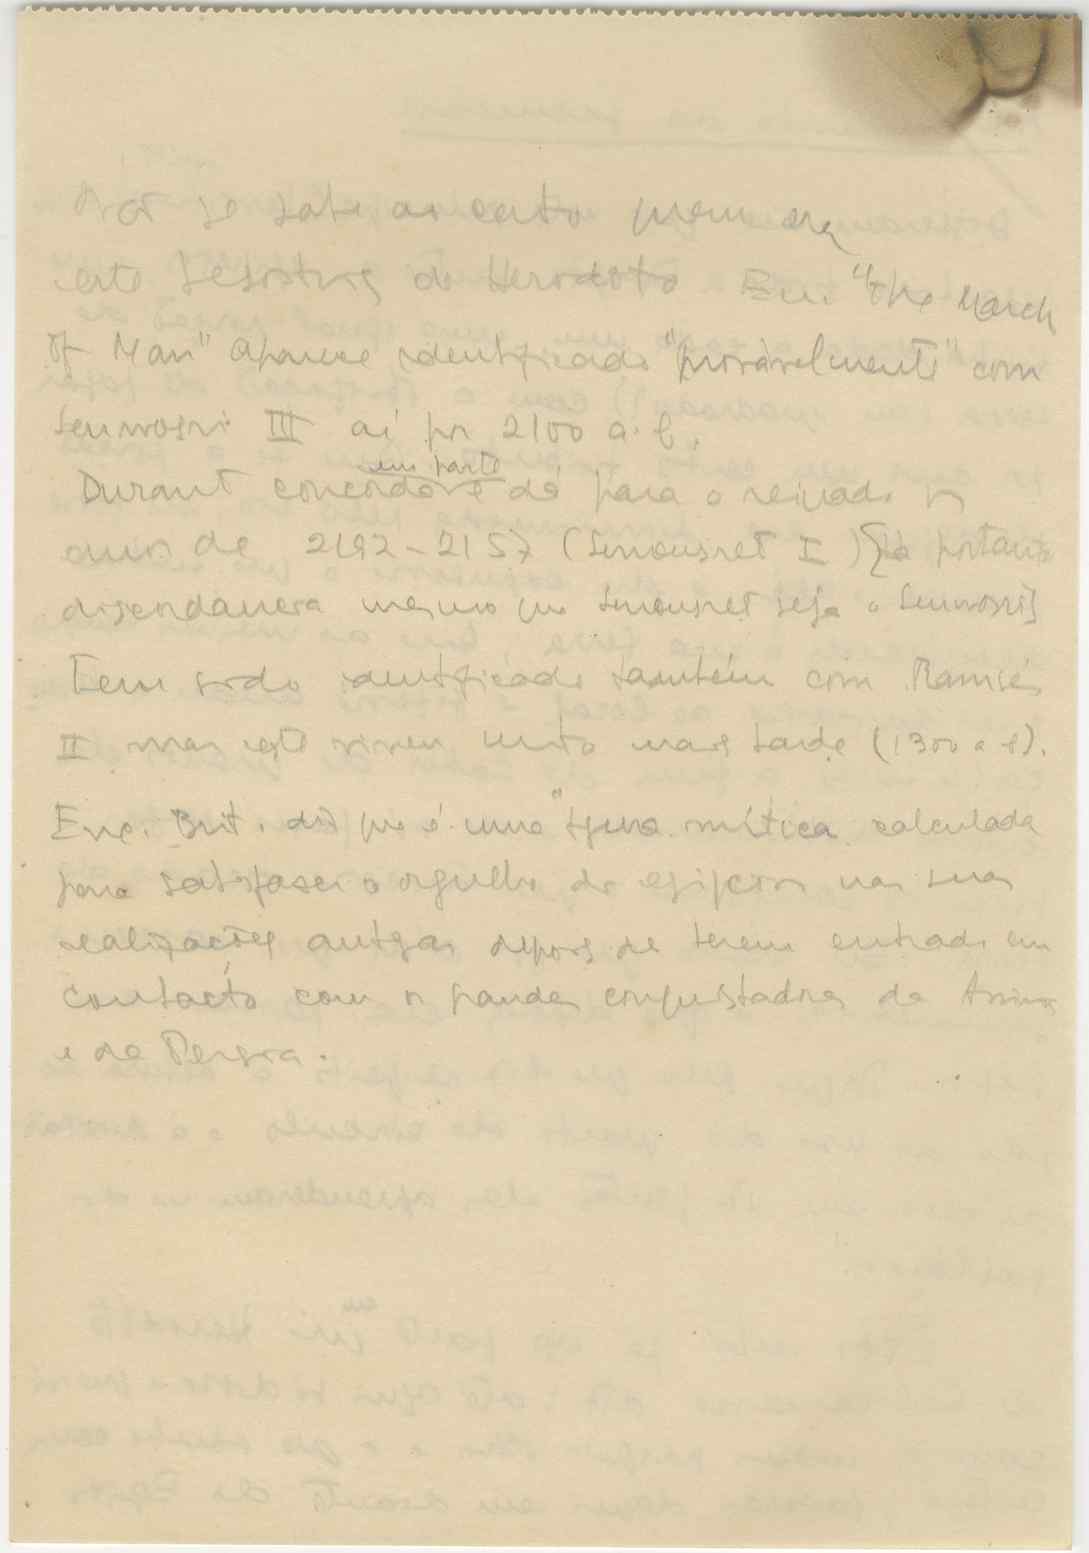 Não se sabe ao certo quem era
este Sesostris de Herodoto Em "The March
of Man" aparece identificado "provàvelmente" com
Senwosri III aí por 2100 a. C.
em parte
Durant concorda e dá para o reinado os
anos de 2192-2157 (Senousret I) [há portanto
discordancia mesmo que Senousret seja o Senwosri]
Tem sido identificado também com Ramsés
II mas este viveu muito mais tarde (1300 a C).
Enc. Brit. diz que é uma "figura mítica calculada
para satisfazer o orgulho dos egipcios nas suas
realizações antigas depois de terem entrado em
contacto com os grandes conquistadores da Assiria
e da Persia.